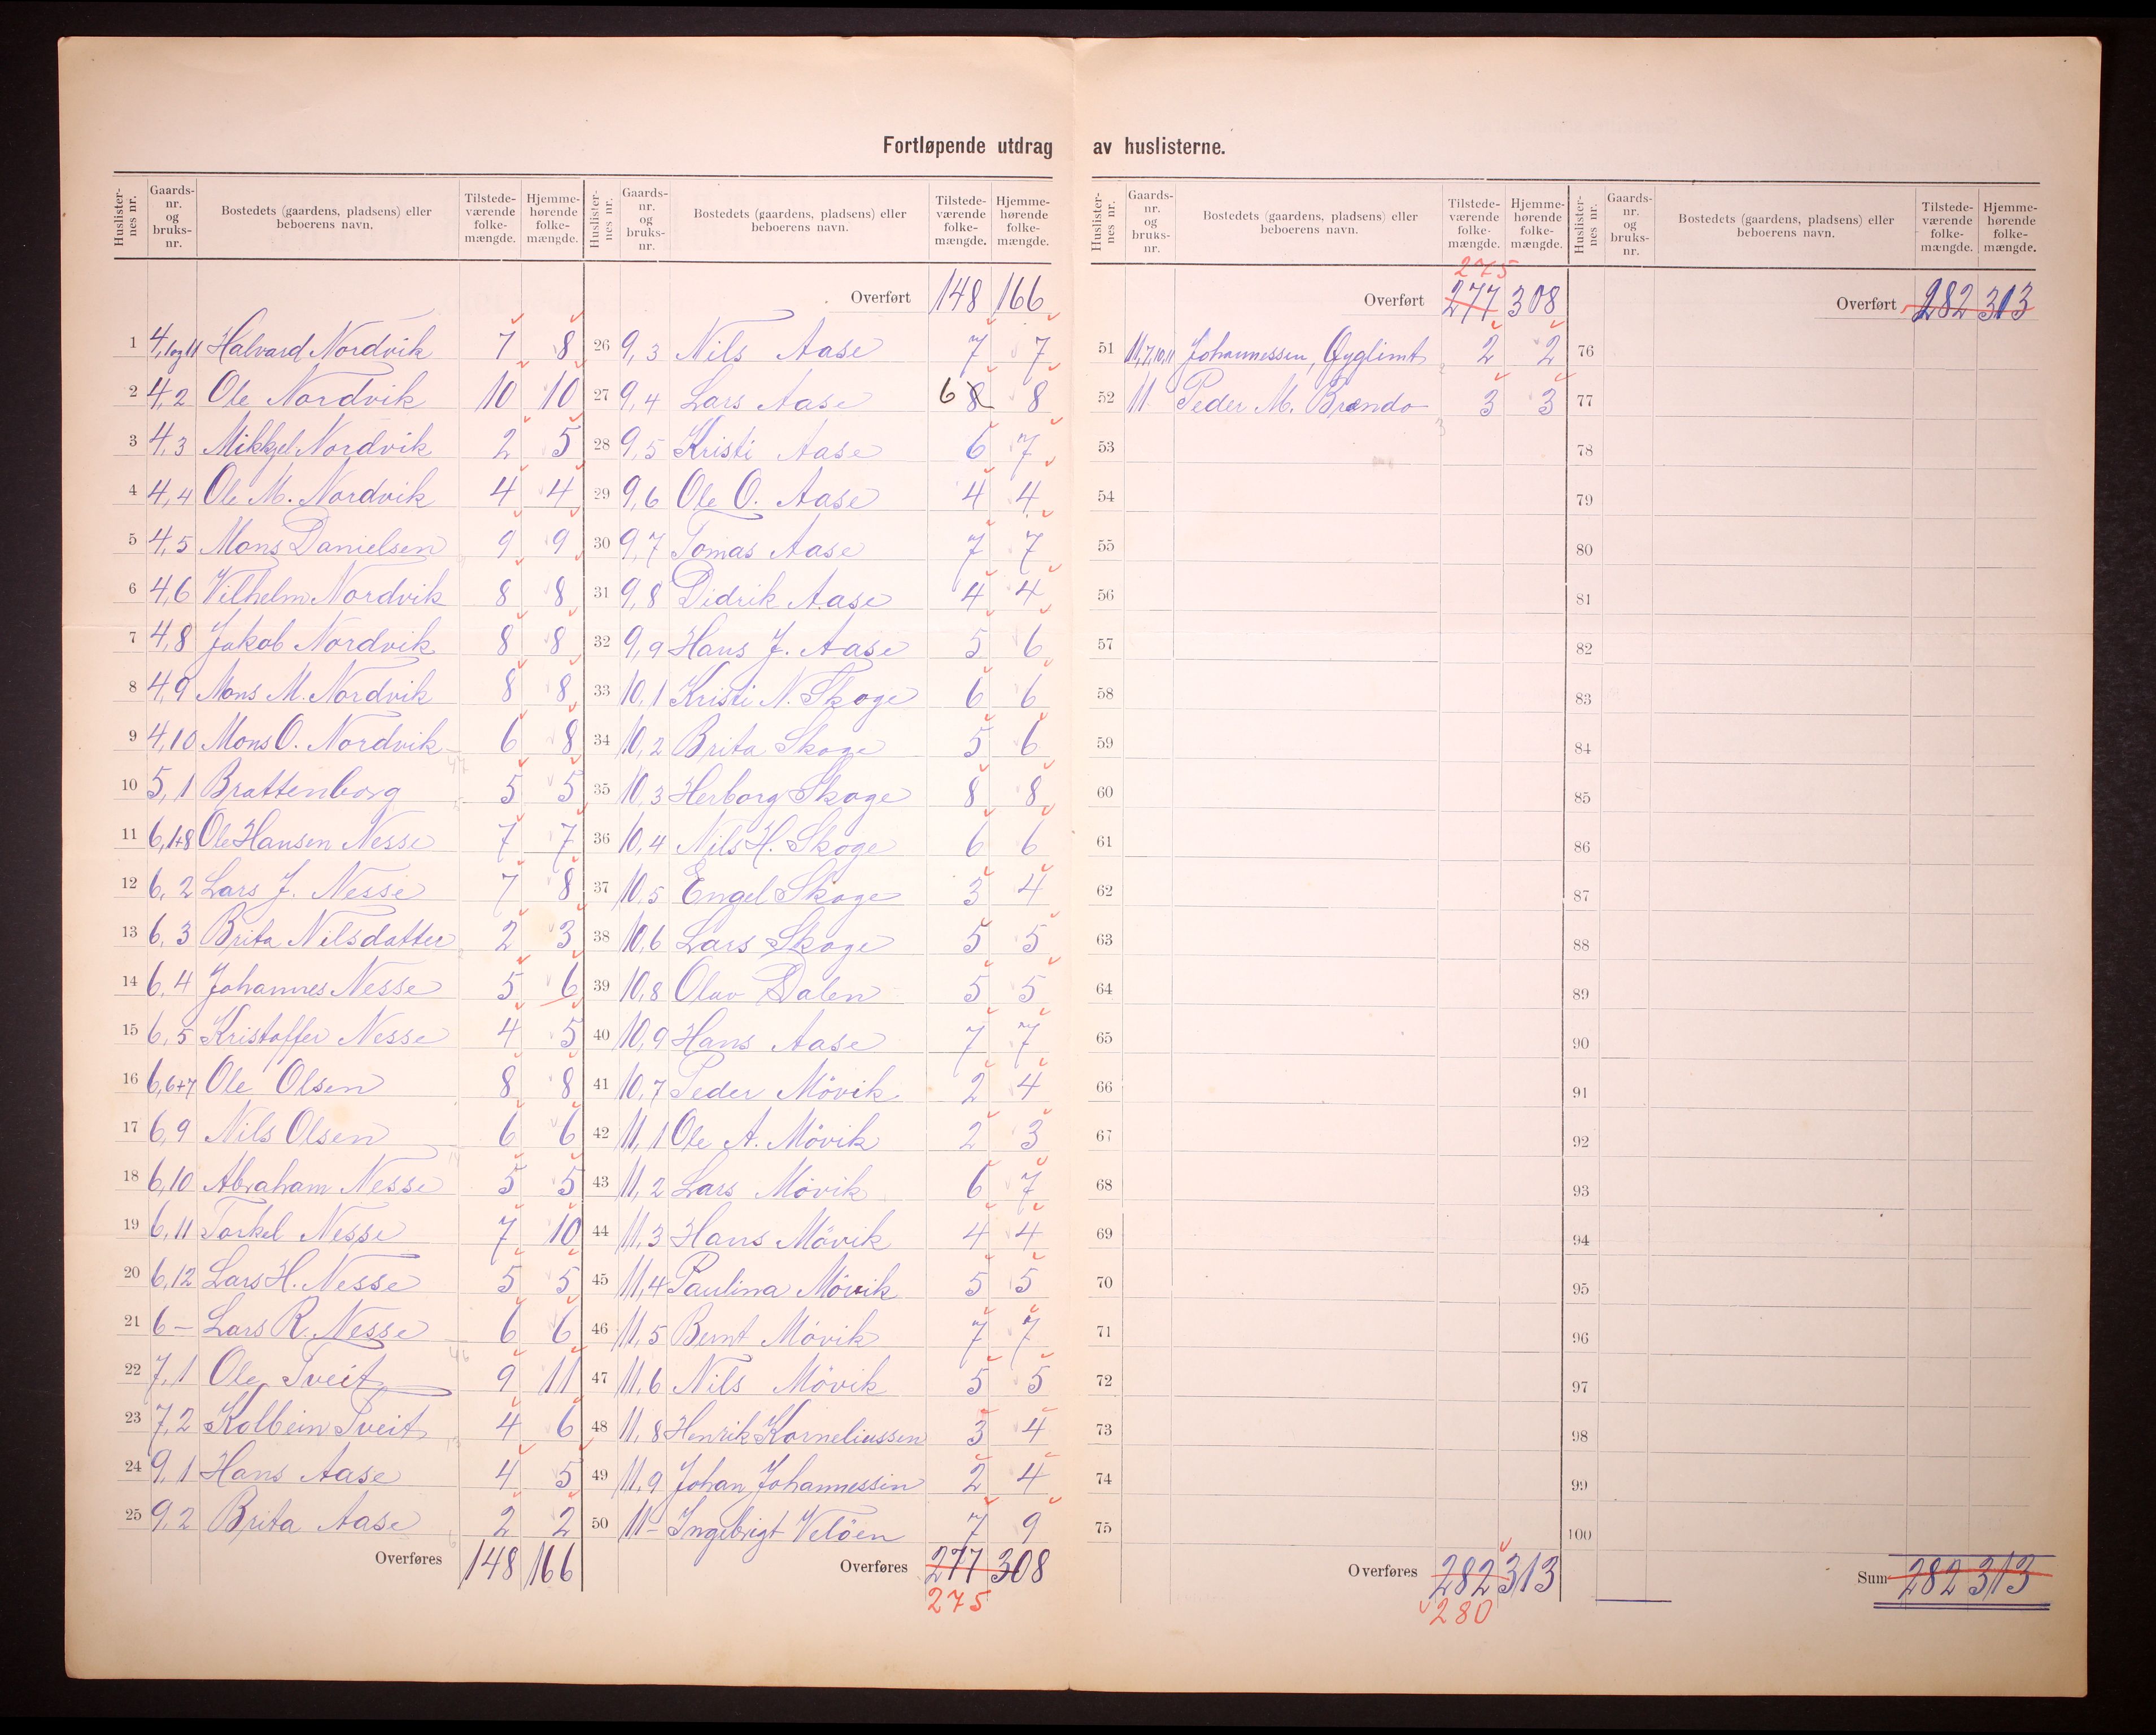 Fortløpende utdrag av huslisterne.
Huslister-nes nr. Gaards-nr. og bruks-nr. Bostedets (gaardens, pladsens) eller beboerens navn. Tilstede-værende folke-mængde. Hjemme-hørende folke-mængde.
1 4,1og11 Halvard Nordvik 7 8
2 4,2 Ole Nordvik 10 10
3 4,3 Mikkjel Nordvik 2 5
4 4,4 Ole M. Nordvik 4 4
5 4,5 Mons Danielsen 9 9
6 4,6 Vilhelm Nordvik 8 8
7 4,8 Jakob Nordvik 8 8
8 4,9 Mons M. Nordvik 8 8
9 4,10 Mons O. Nordvik 6 8
10 5,1 Brattenborg 5 5
11 6,1+8 Ole Hansen Nesse 7 7
12 6,2 Lars J. Nesse 7 8
13 6,3 Brita Nilsdatter 2 3
14 6,4 Johannes Nesse 5 6
15 6,5 Kristoffer Nesse 4 5
16 6,6+7 Ole Olsen 8 8
17 6,9 Nils Olsen 6 6
18 6,10 Abraham Nesse 5 5
19 6,11 Torkel Nesse 7 10
20 6,12 Lars H. Nesse 5 5
21 6- Lars R. Nesse 6 6
22 7,1 Ole Tveit 9 11
23 7,2 Kolbein Tveit 4 6
24 9,1 Hans Aase 4 5
25 9,2 Brita Aase 2 2
Overføres 148 166
Huslister-nes nr. Gaards-nr. og bruks-nr. Bostedets (gaardens, pladsens) eller beboerens navn. Tilstede-værende folke-mængde. Hjemme-hørende folke-mængde.
Overført 148 166
26 9,3 Nils Aase 7 7
27 9,4 Lars Aase 6 8 8
28 9,5 Kristi Aase 6 7
29 9,6 Ole O. Aase 4 4
30 9,7 Tomas Aase 7 7
31 9,8 Didrik Aase 4 4
32 9,9 Hans J. Aase 5 6
33 10,1 Kristi N. Skoge 6 6
34 10,2 Brita Skoge 5 6
35 10,3 Herborg Skoge 8 8
36 10,4 Nils H. Skoge 6 6
37 10,5 Engel Skoge 3 4
38 10,6 Lars Skoge 5 5
39 10,8 Olav Dalen 5 5
40 10,9 Hans Aase 7 7
41 10,7 Peder Mövik 2 4
42 11,1 Ole A. Mövik 2 3
43 11,2 Lars Mövik 6 7
44 11,3 Hans Mövik 4 4
45 11,4 Paulina Mövik 5 5
46 11,5 Bernt Mövik 7 7
47 11,6 Nils Mövik 5 5
48 11,8 Henrik Korneliussen 3 4
49 11,9 Johan Johannessen 2 4
50 11- Ingebrigt Velöen 7 9
Overføres 277 308
275
Huslister-nes nr. Gaards-nr. og bruks-nr. Bostedets (gaardens, pladsens) eller beboerens navn. Tilstede-værende folke-mængde. Hjemme-hørende folke-mængde.
275
Overført 277 308
51 11,7,10,11 Johannessen, Øyglimt 2 2
52 11 Peder M. Brando 3 3
53
54
55
56
57
58
59
60
61
62
63
64
65
66
67
68
69
70
71
72
73
74
75
Overføres 282 313
280
Huslister-nes nr. Gaards-nr. og bruks-nr. Bostedets (gaardens, pladsens) eller beboerens navn. Tilstede-værende folke-mængde. Hjemme-hørende folke-mængde.
Overført 282 313
76
77
78
79
80
81
82
83
84
85
86
87
88
89
90
91
92
93
94
95
96
97
98
99
100
Sum 282 313